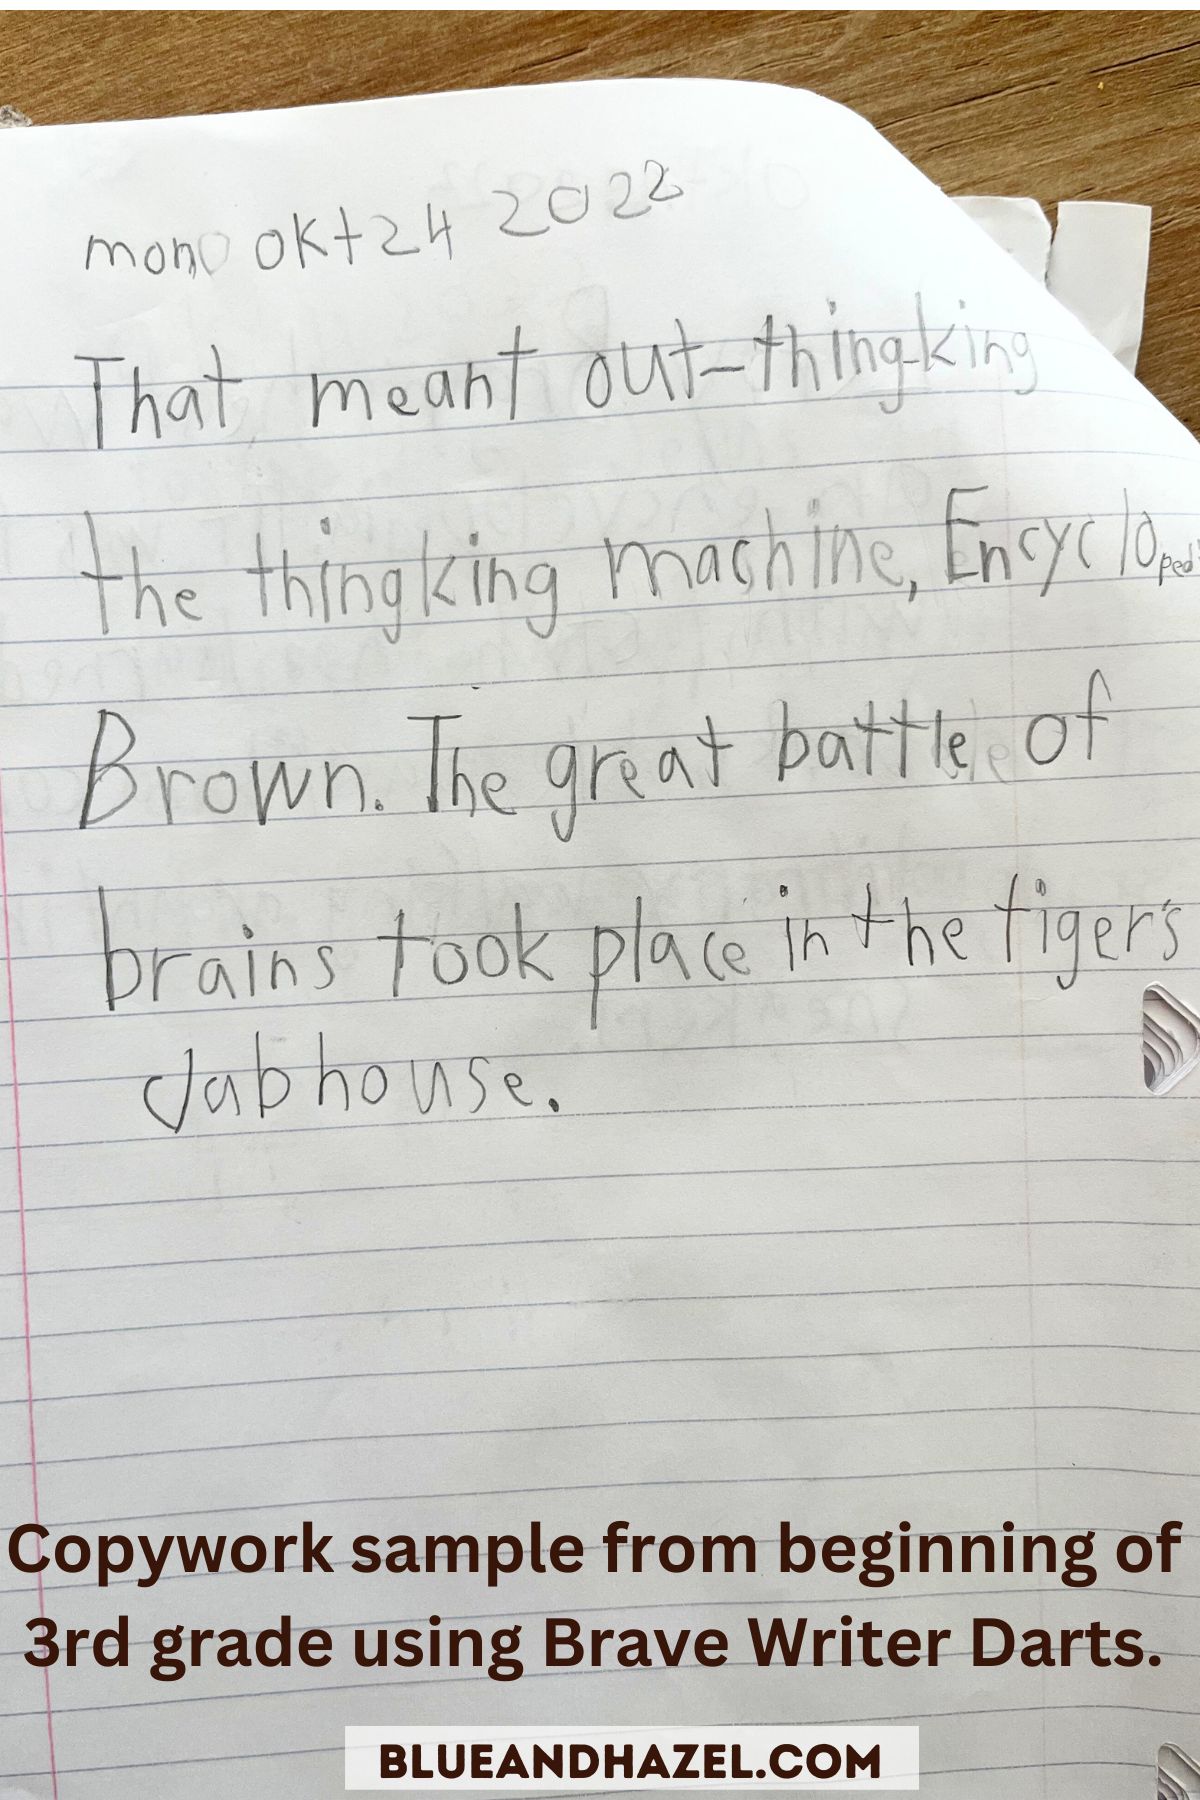 mon okt 24 2022
That meant out-thingking
the thingking machine, Encycloped
Brown. The great battle of
brains took place in the tiger's
Jabhouse.
Copywork sample from beginning of
3rd grade using Brave Writer Darts.
BLUEANDHAZEL.COM